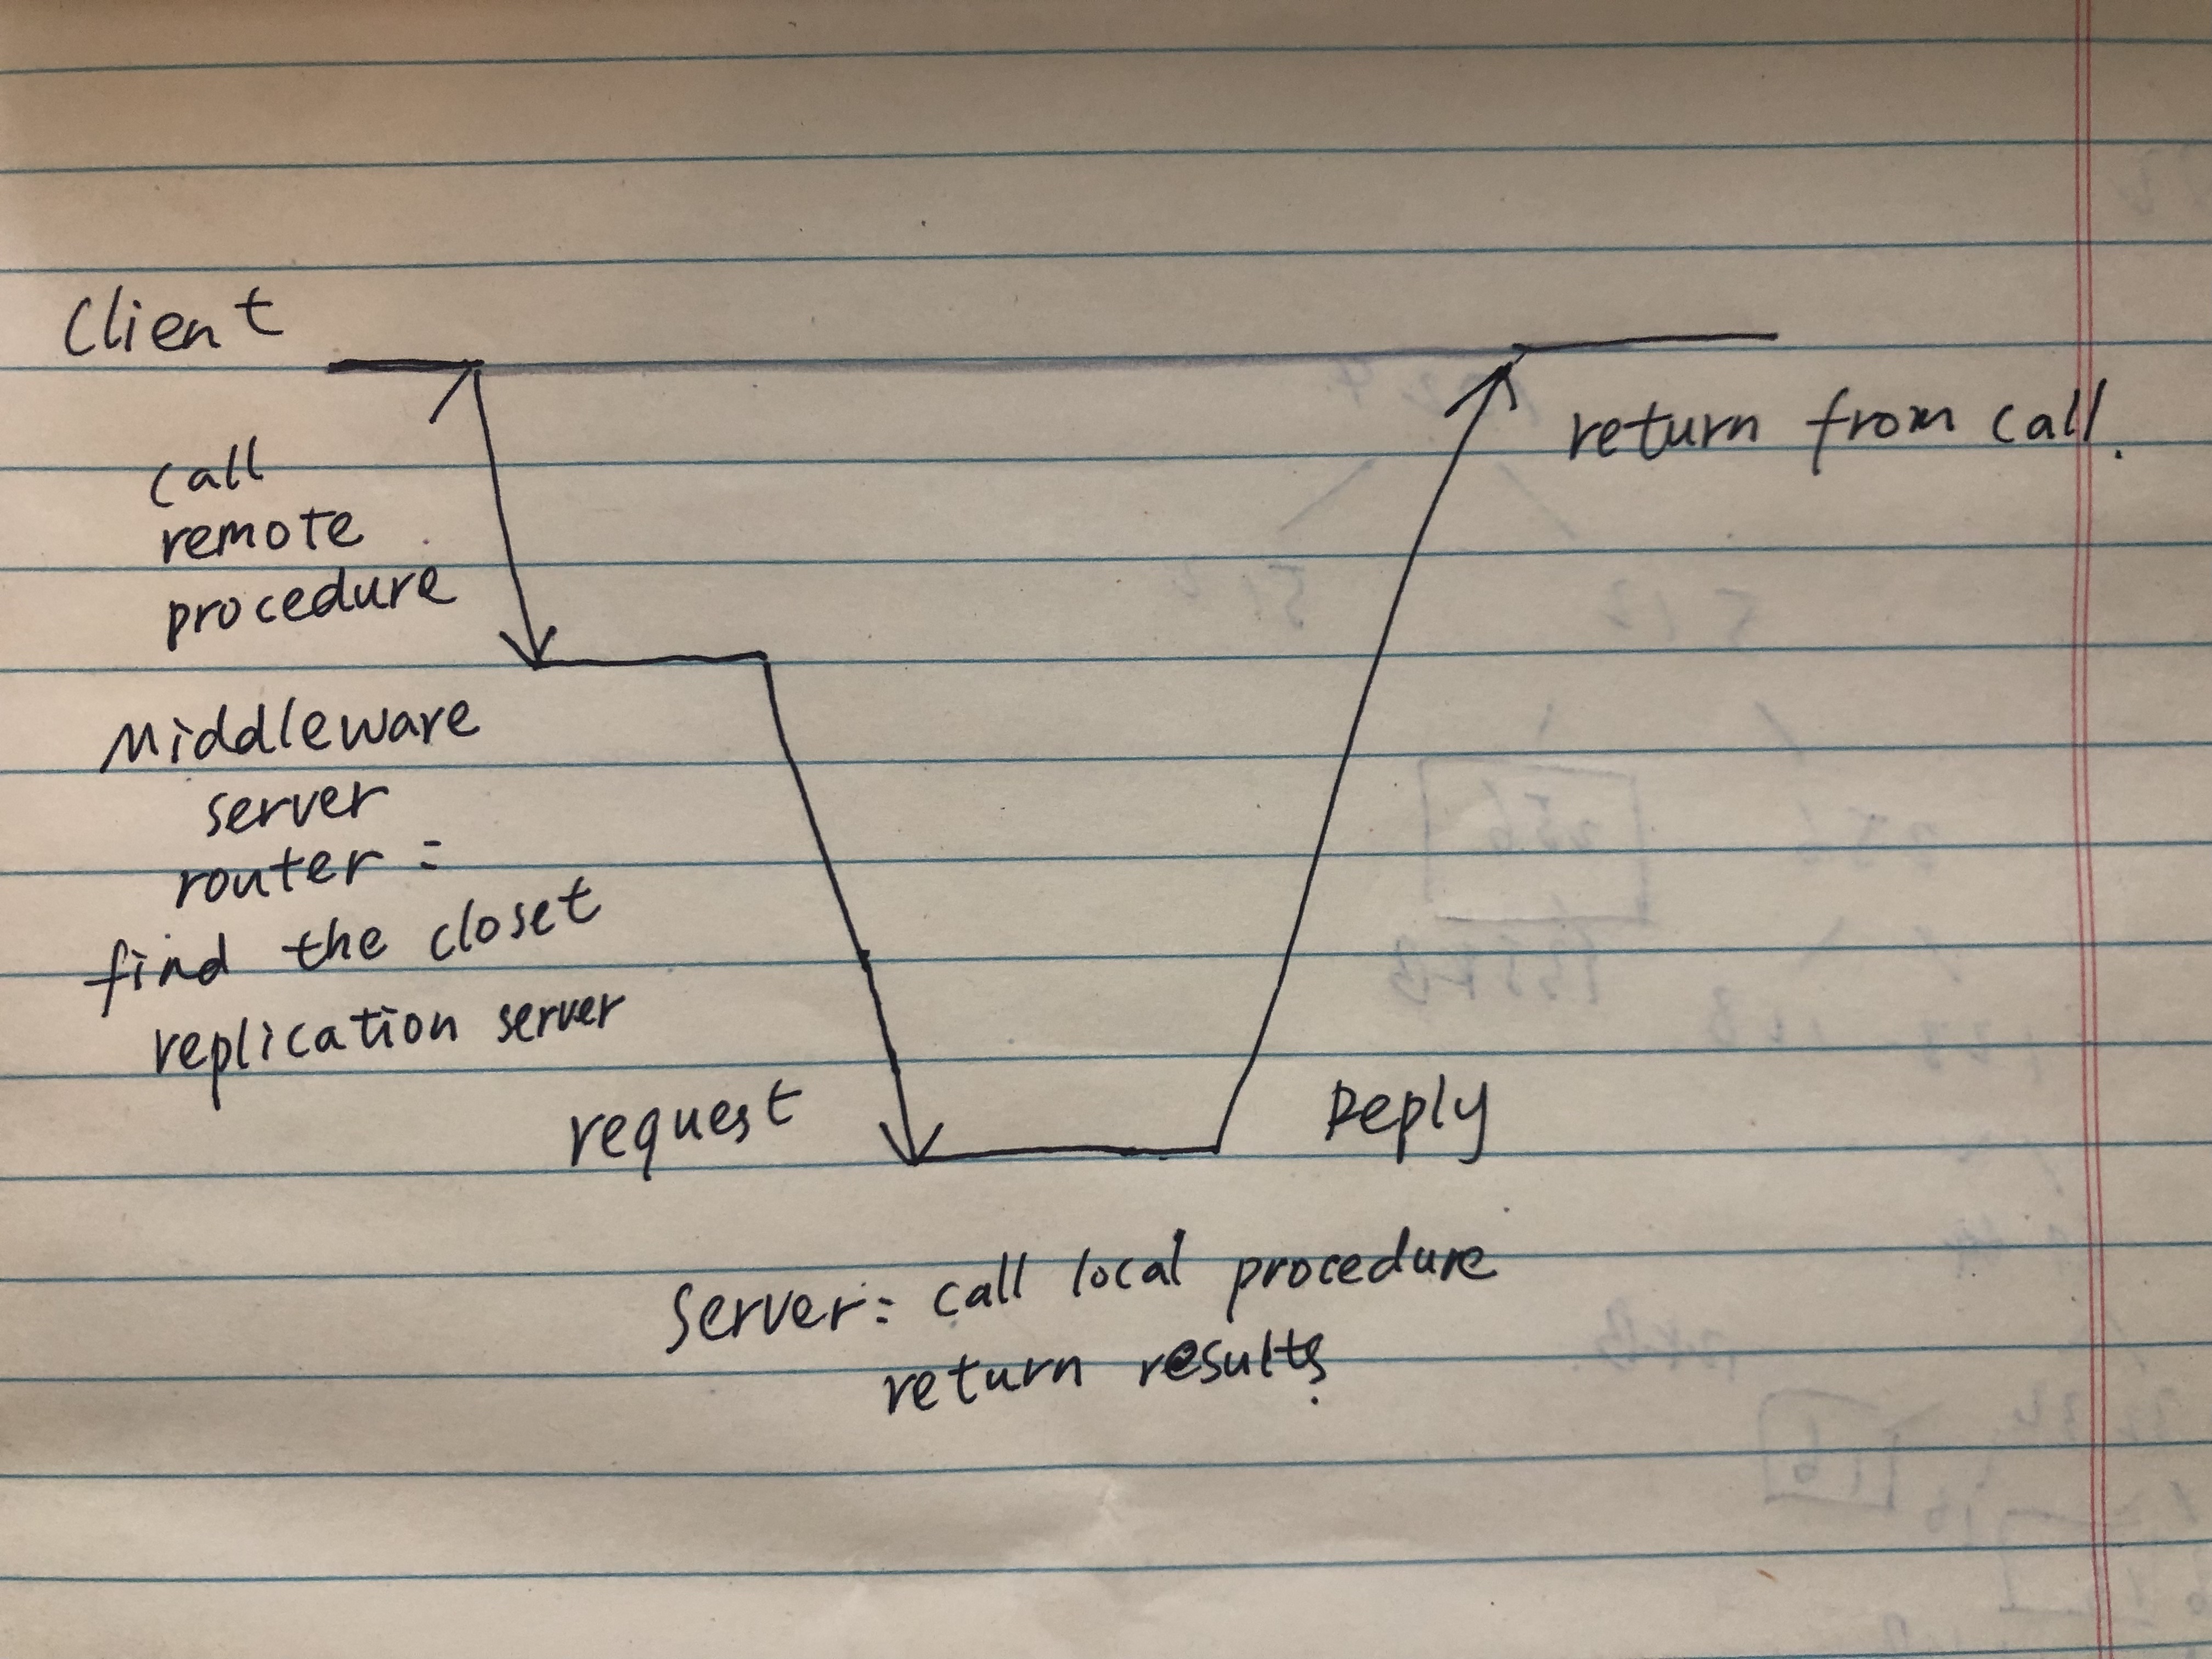 Client
return from call.
call
remote
procedure
Middleware
server
router :
find the closet
replication server
request
Reply
Server: call local procedure
return results